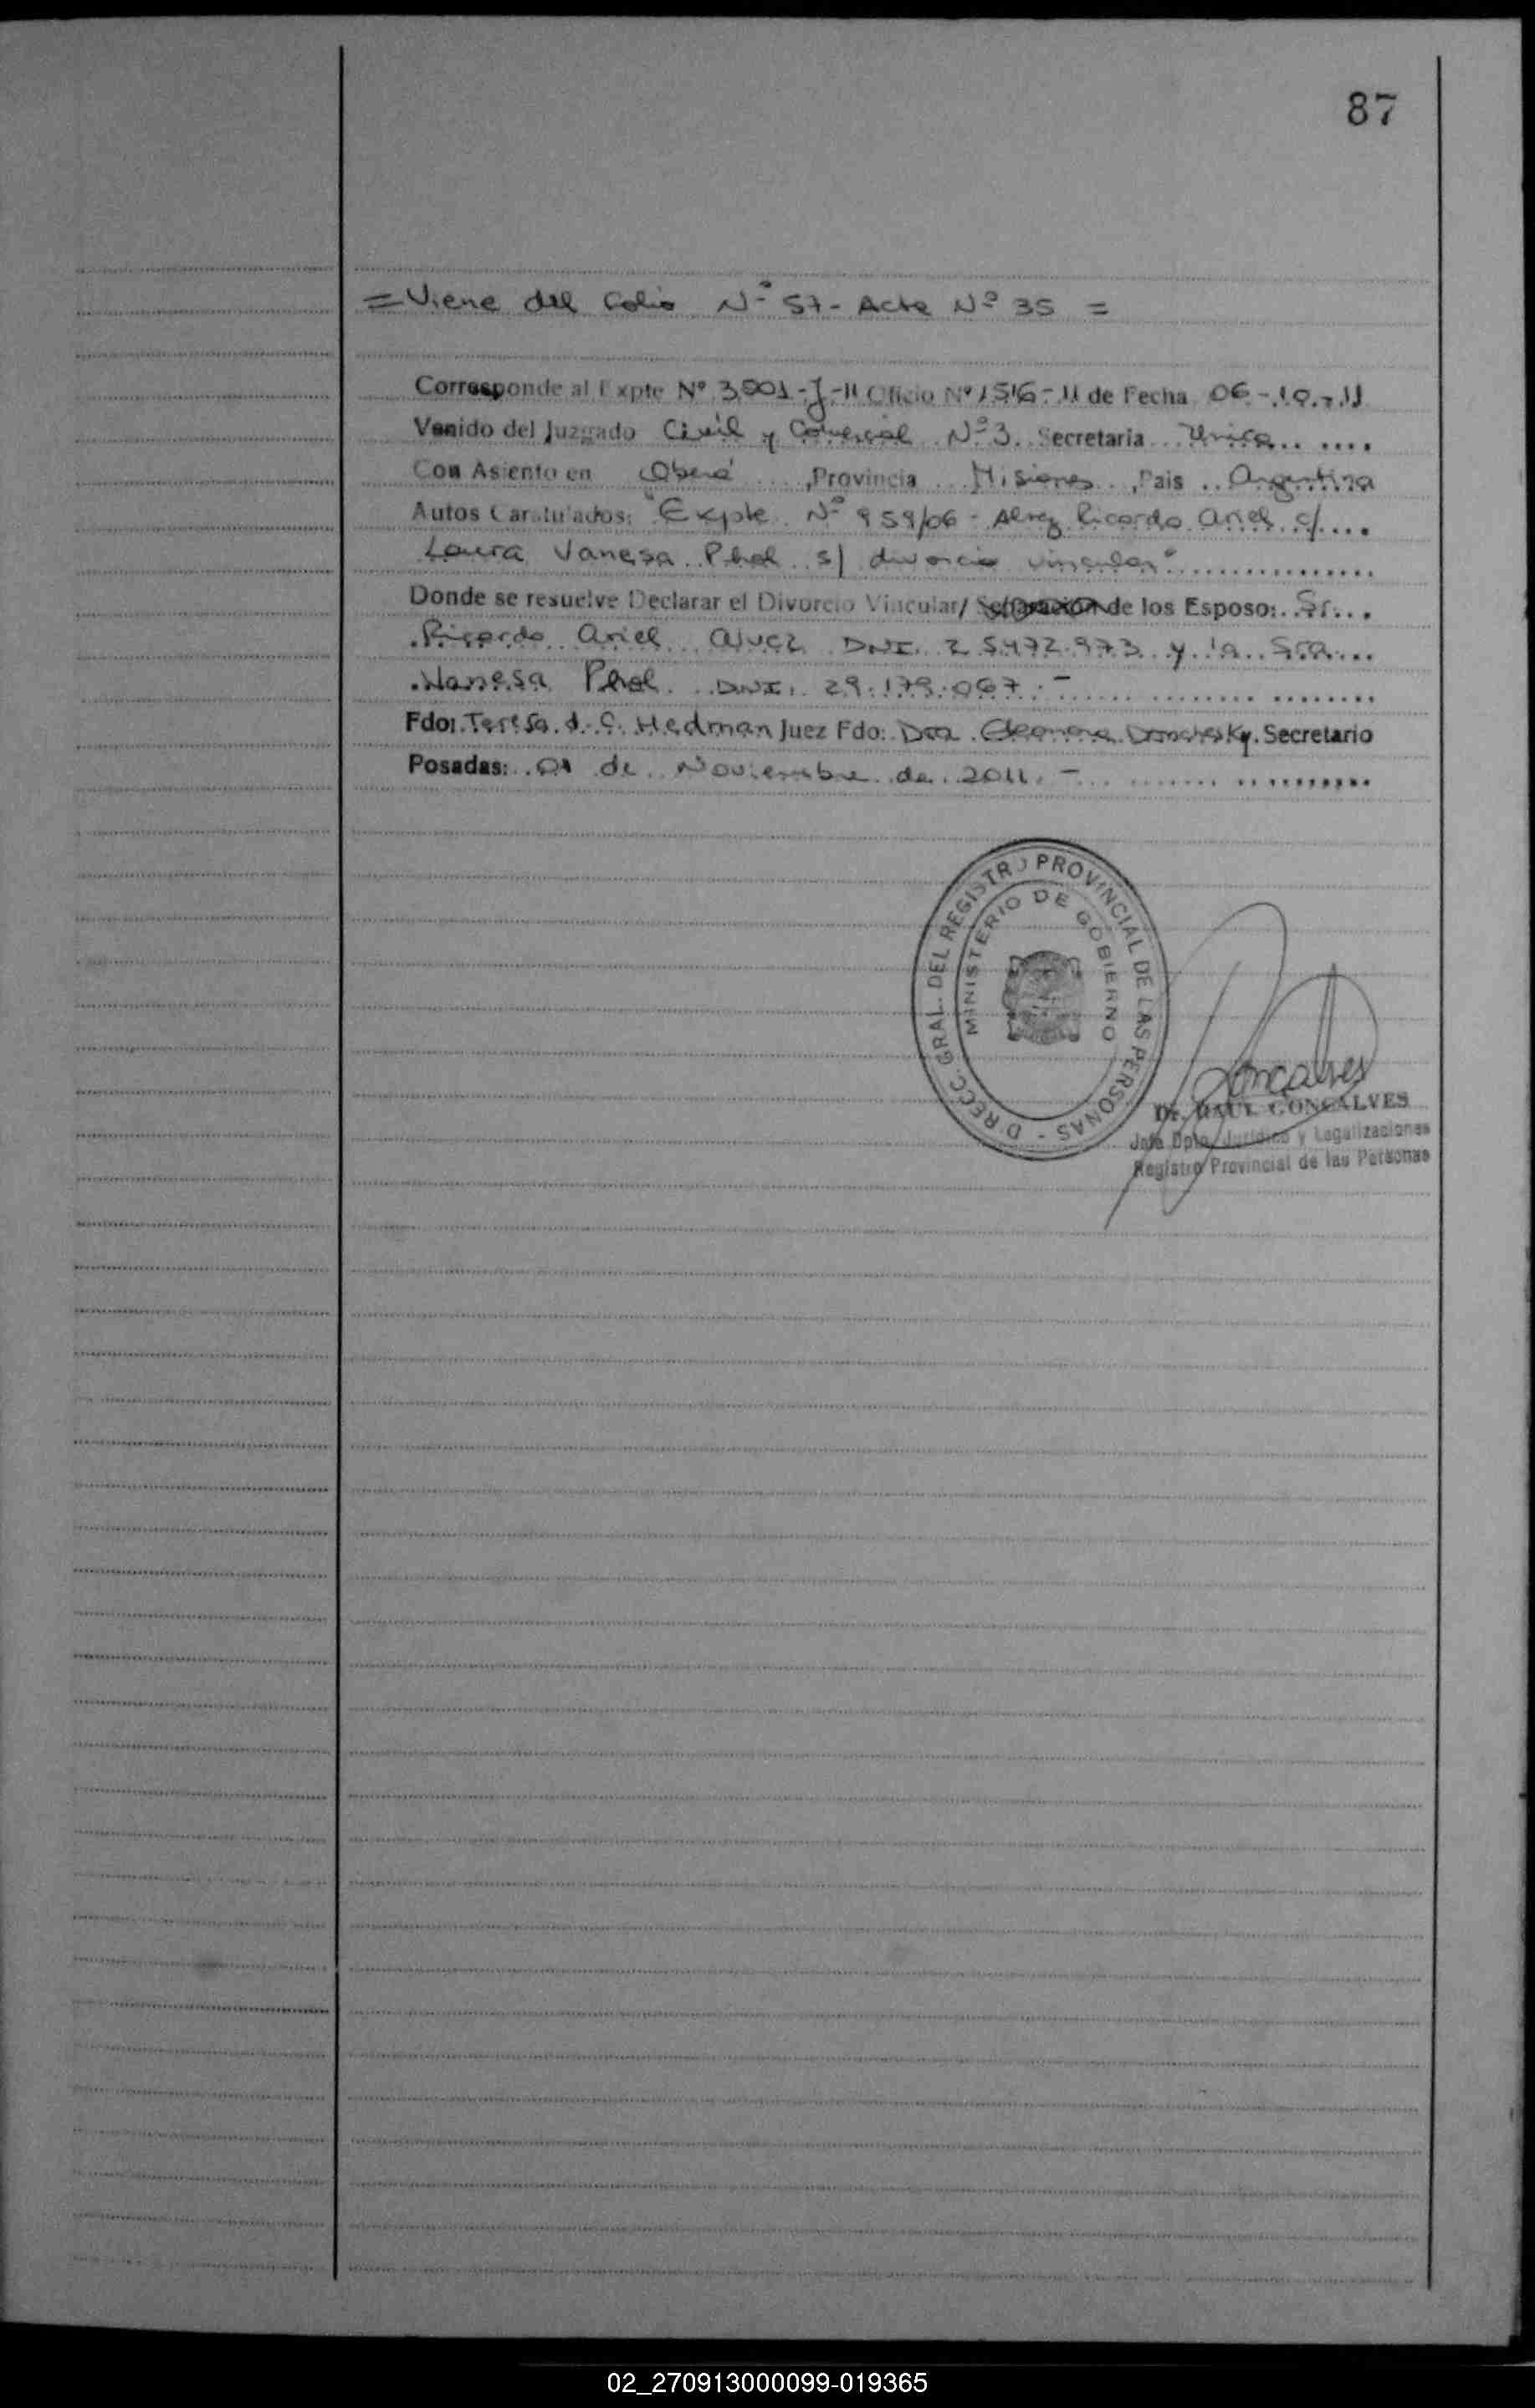 87
= Viene del Folio Nº 57 - Acta Nº 35 =
Corresponde al Expte Nº 3001-J-11 Oficio Nº 1516-11 de Fecha 06-10-11
Venido del Juzgado Civil y Comercial Nº 3 Secretaria Unica
Con Asiento en Oberá, Provincia Misiones, Pais Argentina
Autos Caratulados: "Expte Nº 959/06 - Ricardo Ariel c/
Laura Vanesa Phol s/ divorcio vincular"
Donde se resuelve Declarar el Divorcio Vincular/ Separación de los Esposo: Sr.
Ricardo Ariel DNI. 25.472.973 y la Sra.
Vanesa Phol DNI. 29.179.067.-
Fdo: Teresa Hedman Juez Fdo: Dra. Secretario
Posadas: 01 de Noviembre de 2011.-
DIRECC. GRAL. DEL REGISTRO PROVINCIAL DE LAS PERSONAS -
MINISTERIO DE GOBIERNO
Goncalves
Dr. RAUL GONCALVES
Jefe Dpto. Jurídico y Legalizaciones
Registro Provincial de las Personas
02_270913000099-019365